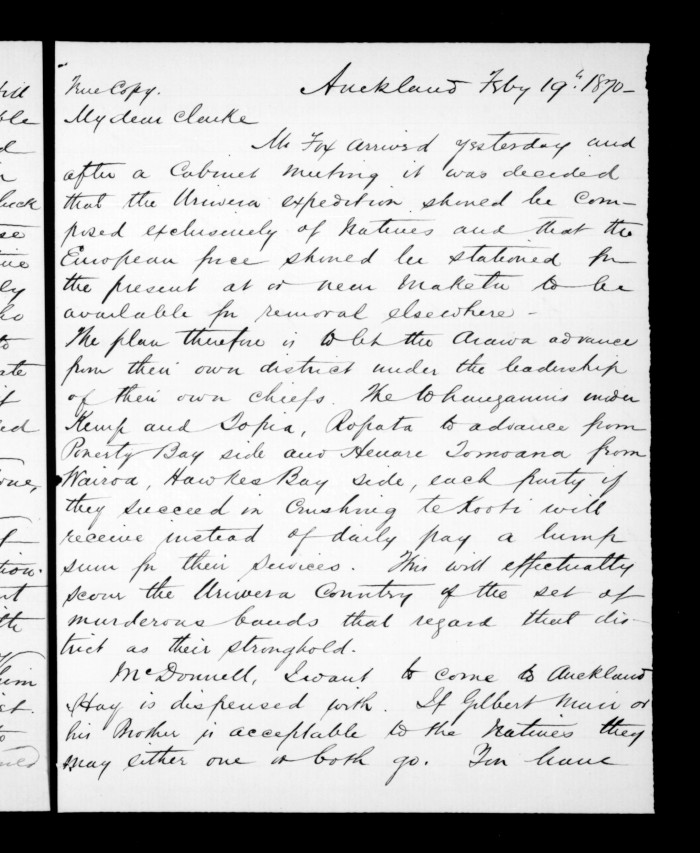 True Copy. Auckland Feby 19th 1870-
My dear Clarke
Mr Fox arrived yesterday and
after a Cabinet meeting it was decided
that the Uriwera expedition should be com-
posed exclusively of Natives and that the
European force should be stationed for
the present at or near Maketu to be
available for removal elsewhere -
The plan therefore is to let the Arawa advance
from their own district under the leadership
of their own chiefs. The Whanganuis under
Kemp and Topia, Ropata to advance from
Poverty Bay side and Henare Tomoana from
Wairoa, Hawkes Bay side, each party if
they succeed in Crushing te Kooti will
receive instead of daily pay a lump
sum for their services. This will effectually
scour the Uriwera Country of the set of
murderous bands that regard that dis-
trict as their stronghold.
McDonnell, I want to come to Auckland
Hay is dispensed with. If Gilbert Mair or
his Brother is acceptable to the Natives they
may either one or both go. You have